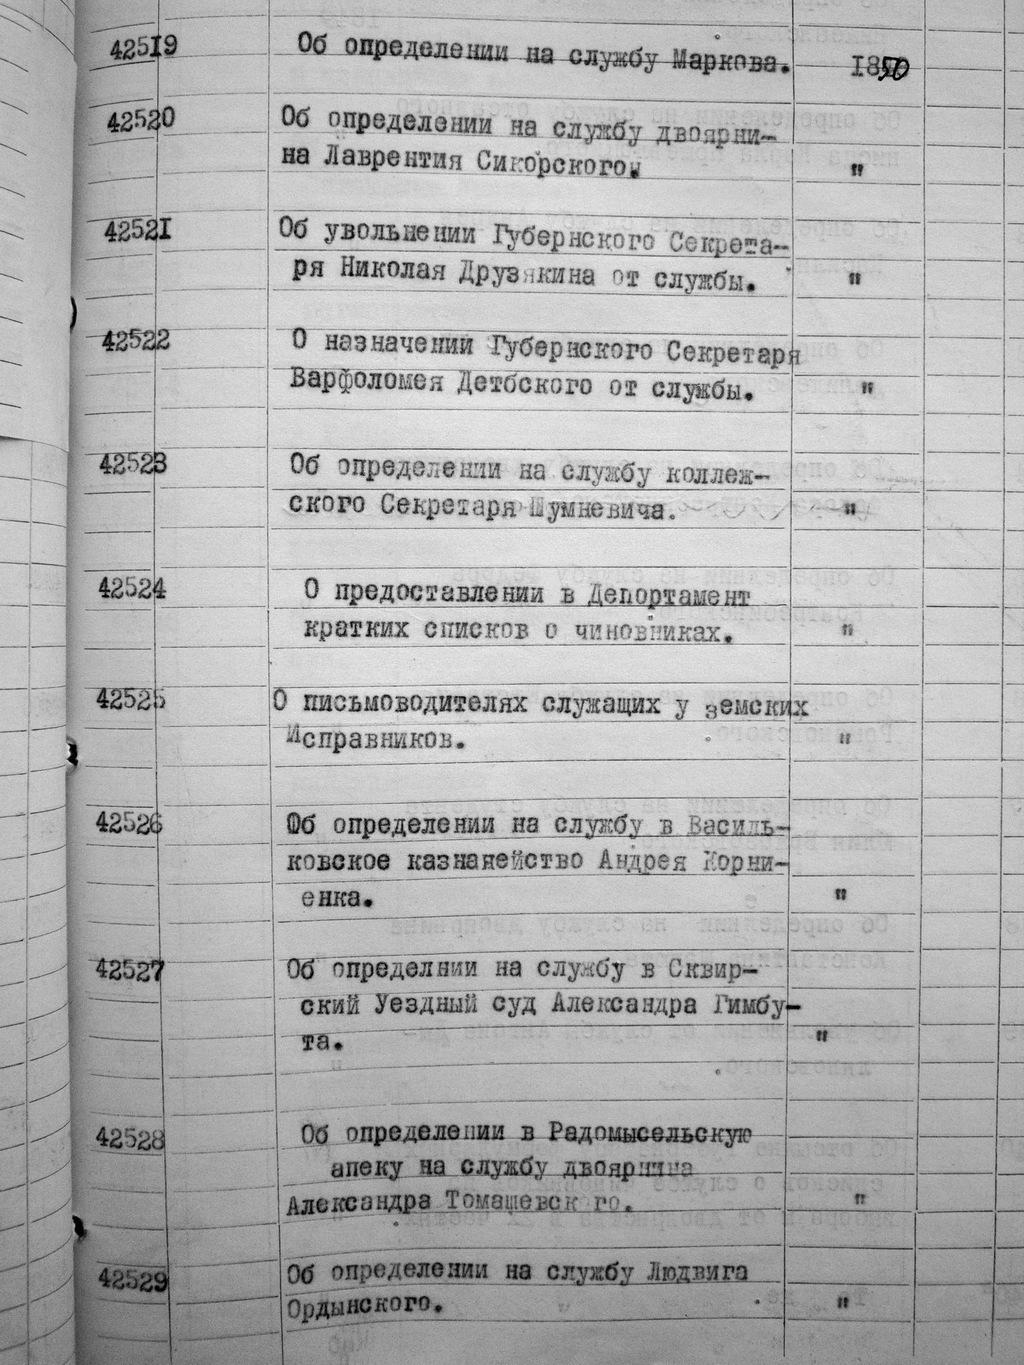 42519 Об определении на службу Маркова. 1850
42520 Об определении на службу двоярни-
на Лаврентия Сикорского. "
42521 Об увольнении Губернского Секрета-
ря Николая Друзякина от службы. "
42522 О назначений Губернского Секретаря
Варфоломея Детбского от службы. "
42523 Об определении на службу коллеж-
ского Секретаря Шумневича. "
42524 О предоставлении в Депортамент
кратких списков о чиновниках. "
42525 О письмоводителях служащих у земских
Исправников. "
42526 Об определении на службу в Василь-
ковское казнанейство Андрея Корни-
енка. "
42527 Об определнии на службу в Сквир-
ский Уездный суд Александра Гимбу-
та. "
42528 Об определении в Радомысельскую
апеку на службу двоярнина
Александра Томашевск го. "
42529 Об определении на службу Людвига
Ордынского. "